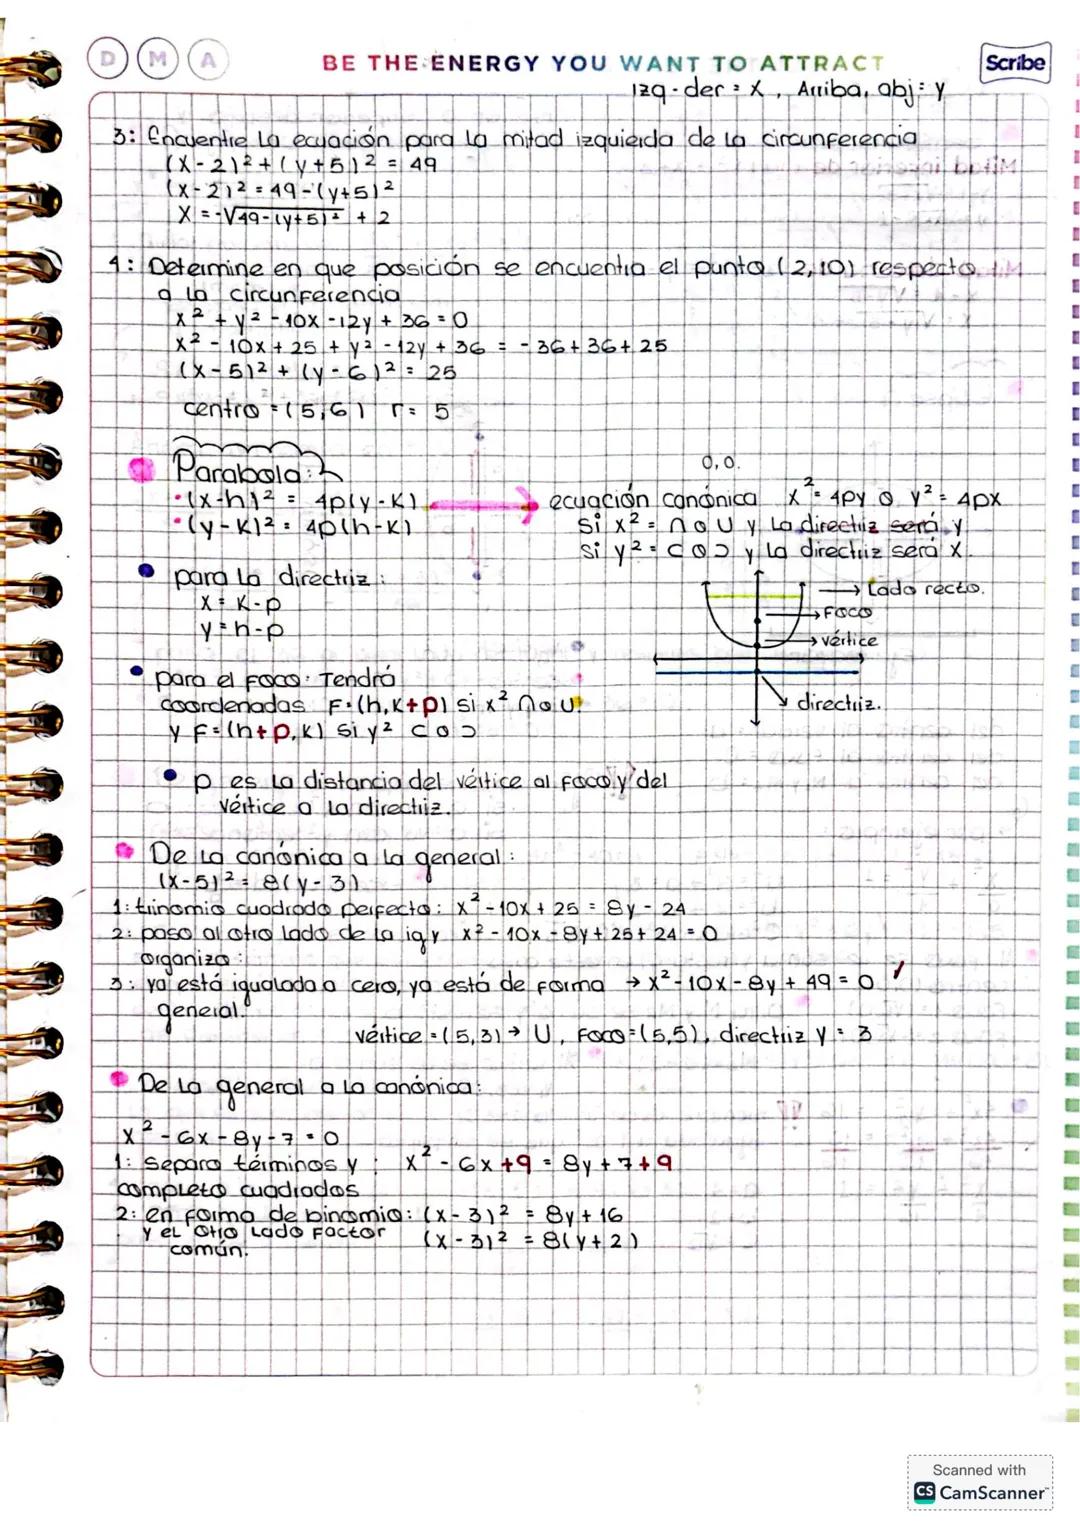 D M A
BE THE ENERGY YOU WANT TO ATTRACT
Scribe
Izq-der = X, Arriba, abj = y
3: Encuentre la ecuación para la mitad izquierda de la circunferencia
(x-2)² + (y+5)² = 49
(x-2)² = 49-(y+5)²
X = -√49-(y+5)² + 2
4: Determine en que posición se encuentra el punto (2,10) respecto
a la circunferencia
x² + y² - 10x - 12y + 36 = 0
x² - 10x + 25 + y² - 12y + 36 = -36 + 36 + 25
(x-5)² + (y-6)² = 25
centro = (5,6) r = 5
Parabola:
• (x-h)² = 4p(y-k)
• (y-k)² = 4p(h-k)
0,0.
ecuación canónica x² = 4py o y² = 4px
Si x² = ∩ o U y la directriz será y
Si y² = ⊂ o ⊃ y la directriz será x.
• para la directriz:
X = K-p
y = h-p
Lado recto.
Foco
vértice
directriz.
• para el foco: Tendrá
coordenadas F=(h,K+p) si x² ∩ o U.
y F=(h+p,K) si y² ⊂ o ⊃
• p es la distancia del vértice al foco y del
vértice a la directriz.
De la canónica a la general:
(x-5)² = 8(y-3)
1: trinomio cuadrado perfecto: x² - 10x + 25 = 8y - 24
2: paso al otro lado de la ig y x² - 10x - 8y + 25 + 24 = 0
organizo:
3: ya está igualada a cero, ya está de forma → x² - 10x - 8y + 49 = 0
general.
vértice = (5,3) → U, Foco = (5,5), directriz y = 3
De la general a la canónica:
x² - 6x - 8y - 7 = 0
1: Separo términos y : x² - 6x + 9 = 8y + 7 + 9
completo cuadrados
2: en forma de binomio: (x-3)² = 8y + 16
y el otro lado factor (x-3)² = 8(y+2)
común.
Scanned with
CS CamScanner